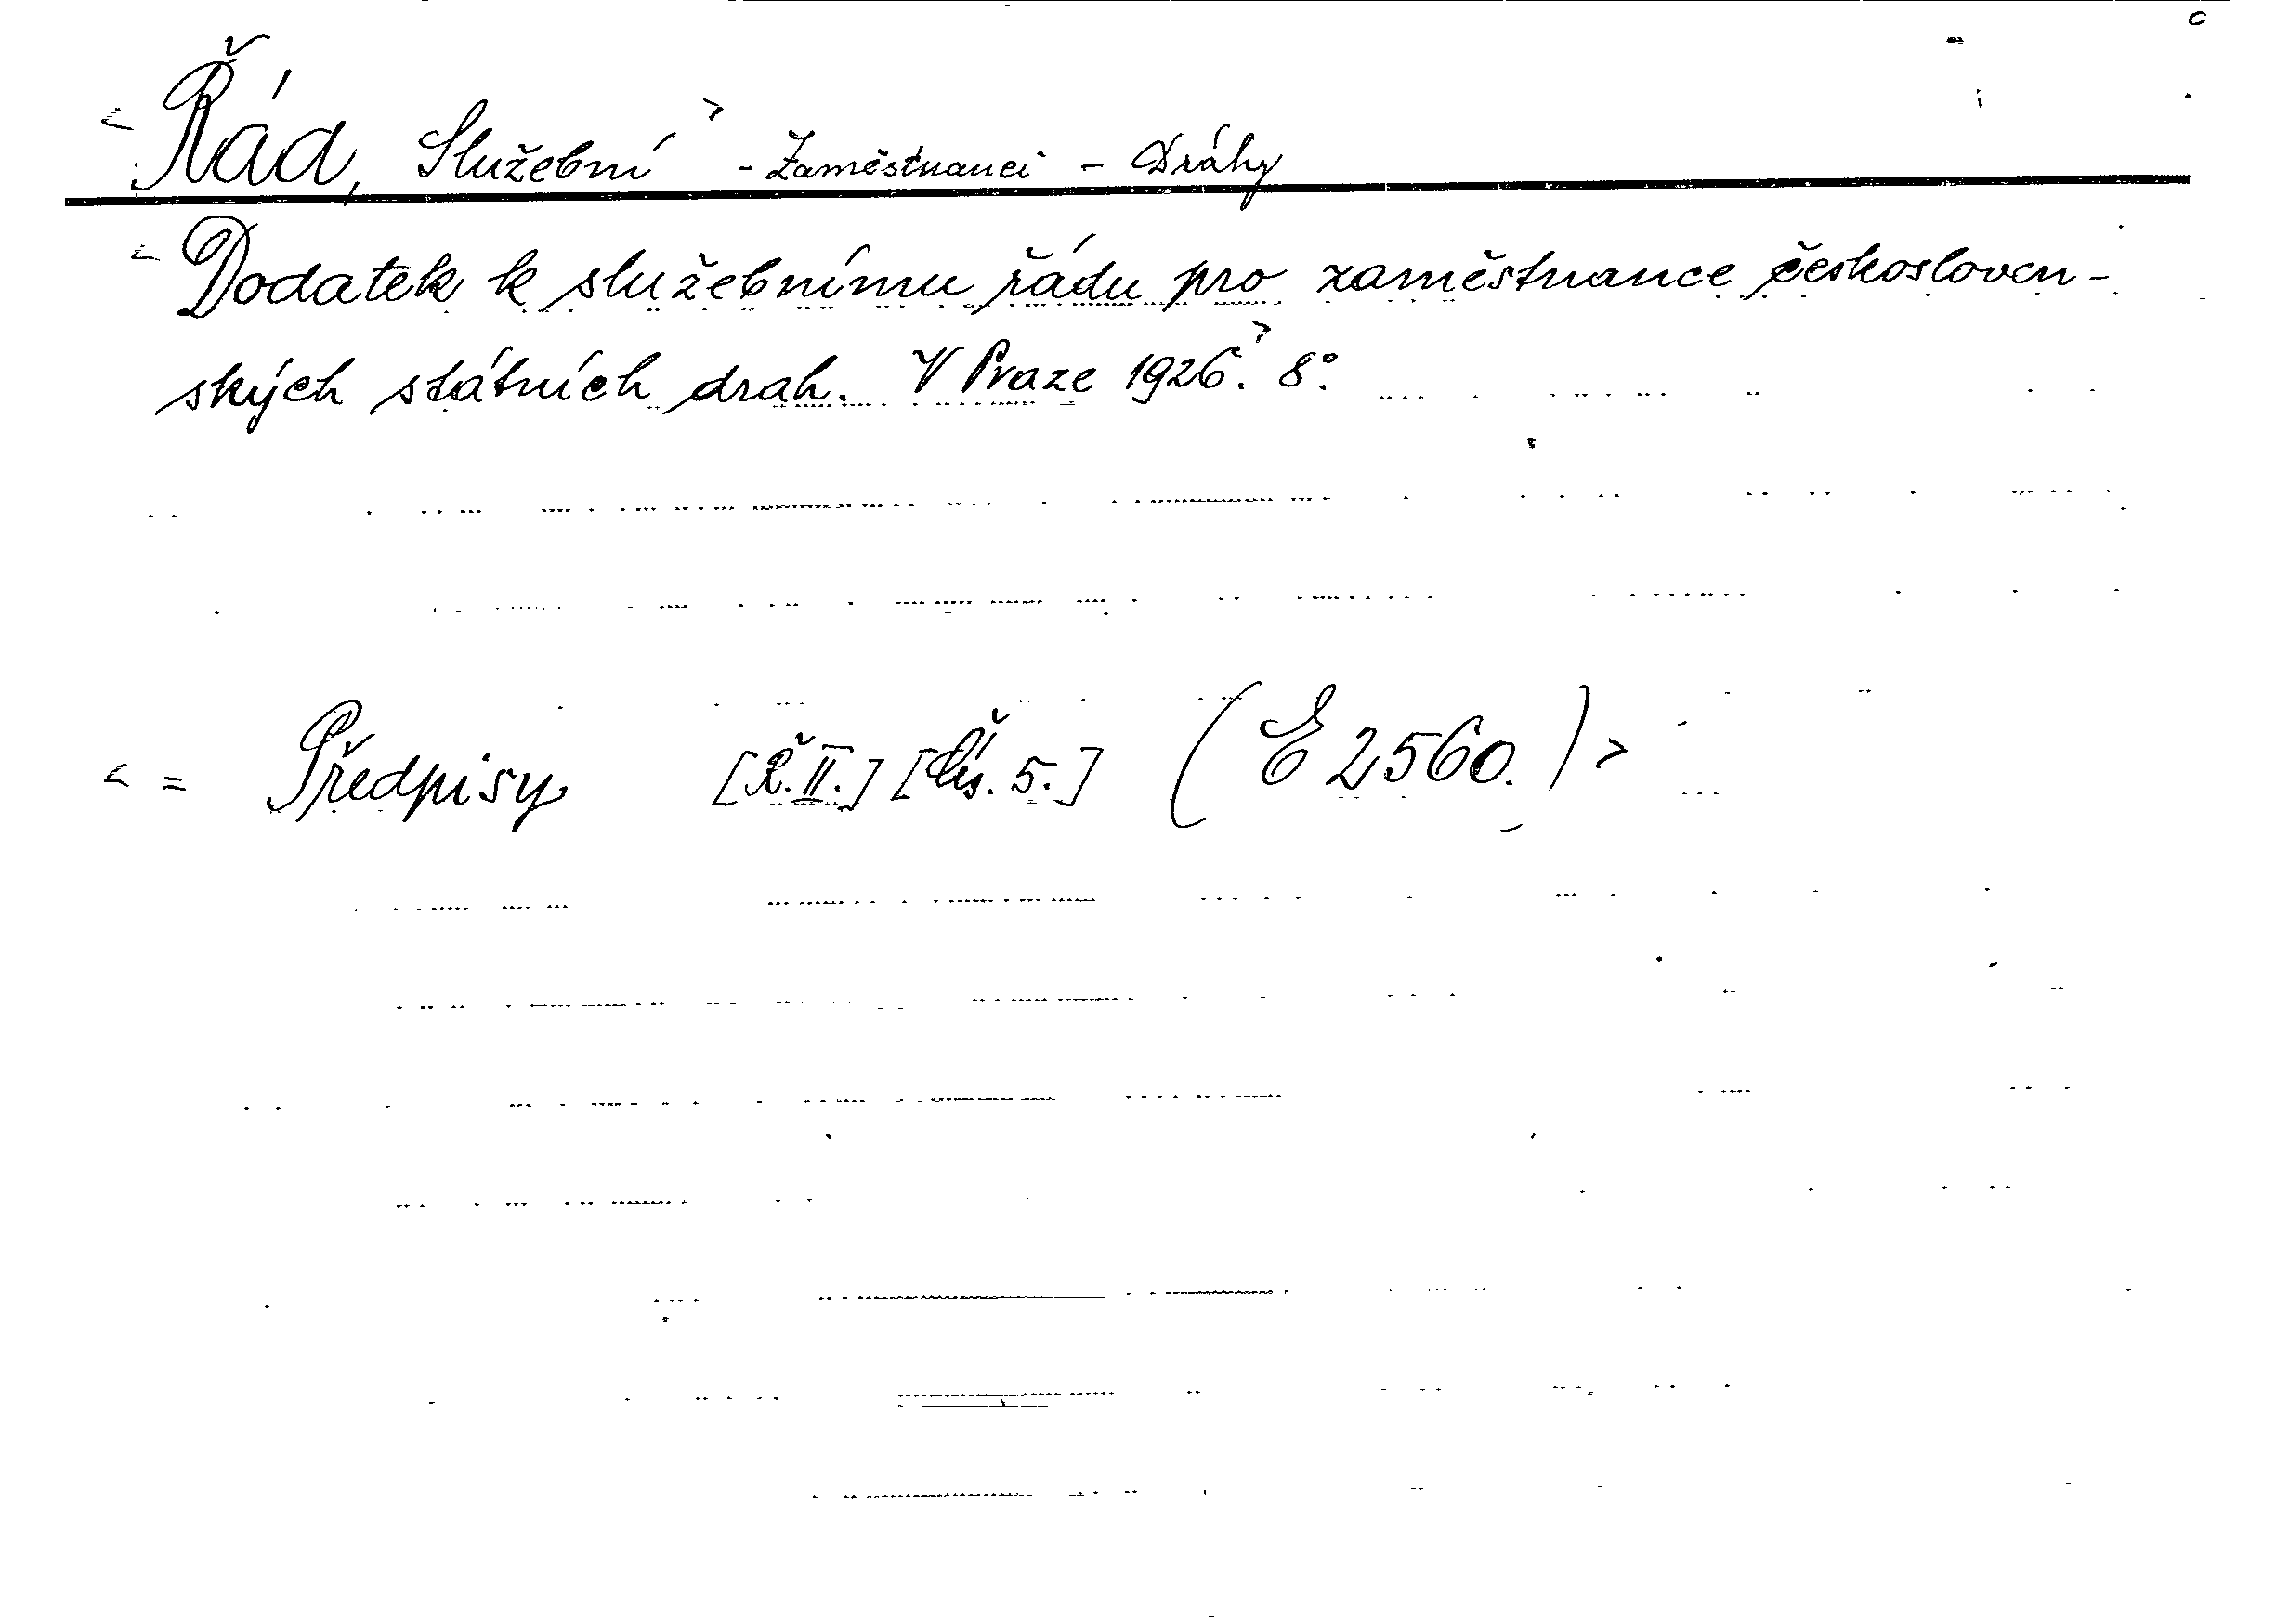 < Řád, Služební > - Zaměstnanci - Dráhy
< Dodatek k služebnímu řádu pro zaměstnance českosloven-
ských státních drah. V Praze 1926. > 8°.
< = Předpisy [Ř. II.] [Čís. 5.] (E 2560.) >